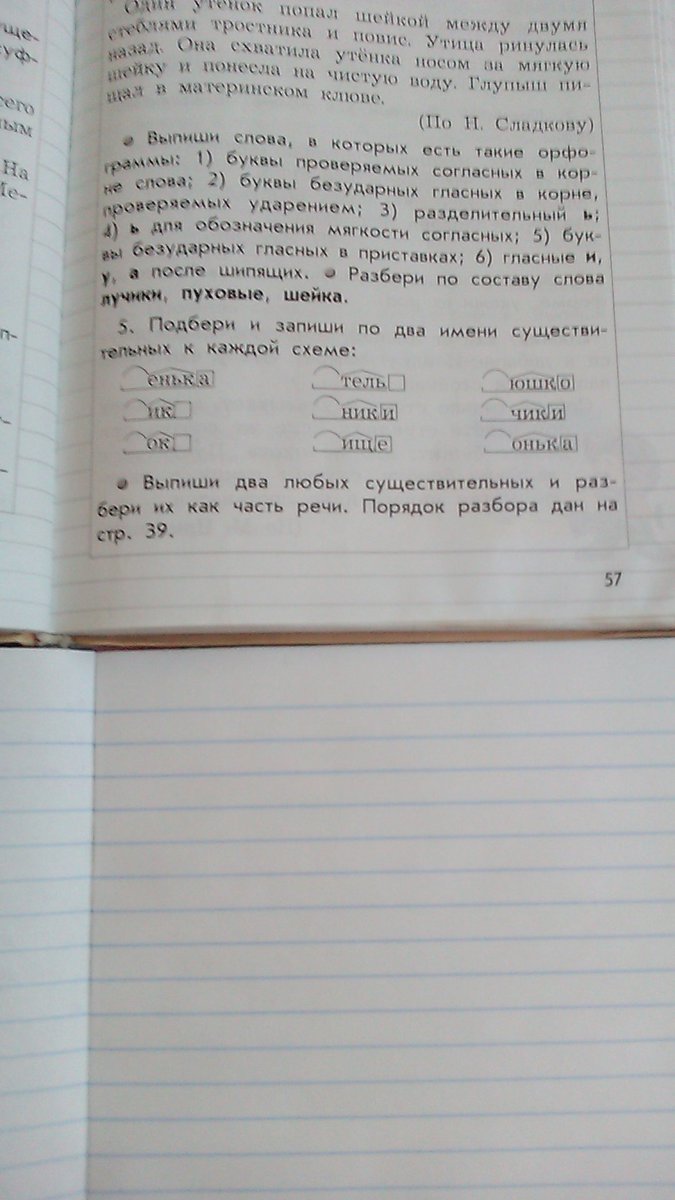 Один утёнок попал шейкой между двумя
стеблями тростника и повис. Утица ринулась
назад. Она схватила утёнка носом за мягкую
шейку и понесла на чистую воду. Глупыш пи-
щал в материнском клюве.
(По Н. Сладкову)
Выпиши слова, в которых есть такие орфо-
граммы: 1) буквы проверяемых согласных в кор-
не слова; 2) буквы безударных гласных в корне,
проверяемых ударением; 3) разделительный ь;
4) ь для обозначения мягкости согласных; 5) бук-
вы безударных гласных в приставках; 6) гласные и,
у, а после шипящих. Разбери по составу слова
лучики, пуховые, шейка.
5. Подбери и запиши по два имени существи-
тельных к каждой схеме:
енька тель юшко
ик ники чики
ок ище онька
Выпиши два любых существительных и раз-
бери их как часть речи. Порядок разбора дан на
стр. 39.
57
уще-
суф-
ным
На